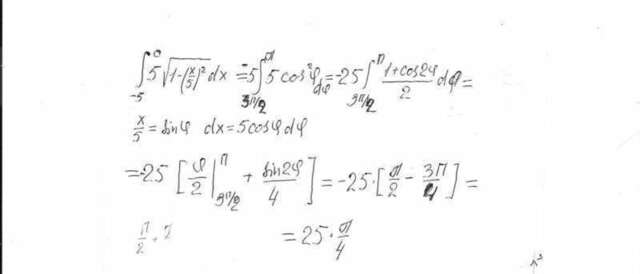 ∫₋₅⁰ 5√(1-(x/5)²) dx = -5 ∫_{3π/2}^{π} 5 cos²φ dφ = -25 ∫_{3π/2}^{π} (1+cos2φ)/2 dφ =
x/5 = sinφ dx = 5cosφ dφ
= -25 [φ/2 |_{3π/2}^{π} + sin2φ/4] = -25·[π/2 - 3π/4] =
π/2 + = 25·π/4